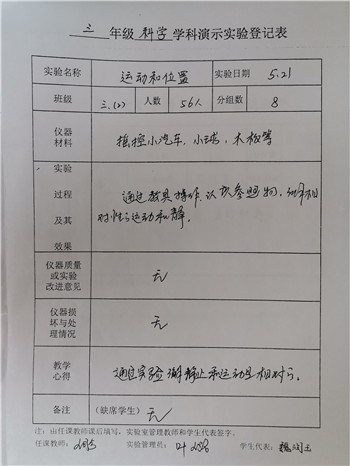 三 年级 科学 学科演示实验登记表
实验名称 运动和位置 实验日期 5.21
班级 三.(2) 人数 56人 分组数 8
仪器
材料
摇控小汽车，小球，木板等
实验
过程
及其
效果
通过教具操作，认识参照物，
对性运动和静。
仪器质量
或实验
改进意见
无
仪器损
坏与处
理情况
无
教学
心得
通过实验理解静止和运动是相对的。
备注 (缺席学生) 无
注：由任课教师课后填写，实验室管理教师和学生代表签字。
任课教师： 实验管理员：叶 学生代表：